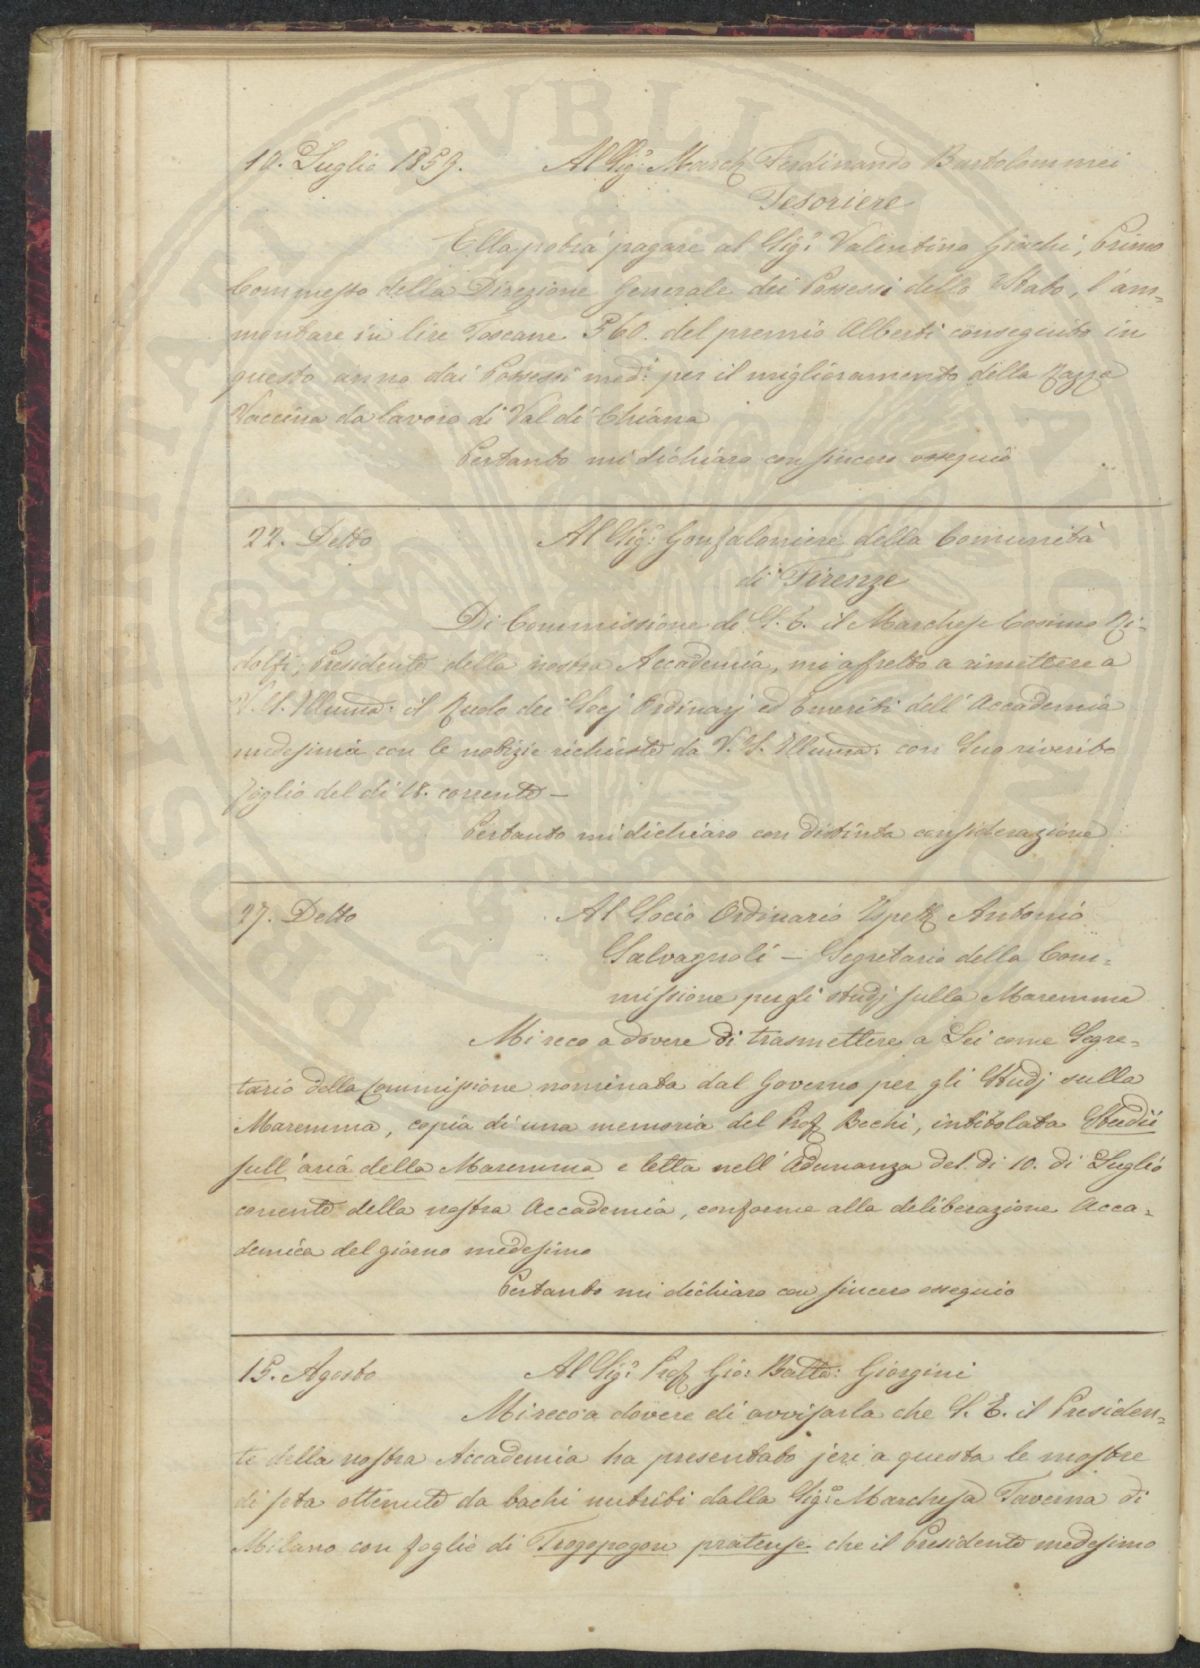 19. Luglio 1859. Al Sig.r March. Ferdinando Bartolommei
Tesoriere
Ella potrà pagare al Sig.r Valentino Giachi, Primo
Commesso della Direzione Generale dei Possessi dello Stato, l'am=
montare in lire Toscane 560. del premio Alberti conseguito in
questo anno dai Possessi med.i per il miglioramento della Razza
Vaccina da lavoro di Val di Chiana
Pertanto mi dichiaro con sincero ossequio
22. Detto Al Sig.r Gonfaloniere della Comunità
di Firenze
Di Commissione di S. E. il Marchese Cosimo Ri-
dolfi, Presidente della nostra Accademia, mi affretto a rimettere a
V. S. Illuma: il Ruolo dei Socj Ordinarj ed Emeriti dell'Accademia
medesima con le notizie richieste da V. S. Illuma: con Suo riverito
foglio del dì 18. corrente —
Pertanto mi dichiaro con distinta considerazione
27. Detto Al Socio Ordinario Ispett. Antonio
Salvagnoli — Segretario della Com=
missione per gli studj sulla Maremma
Mi reco a dovere di trasmettere a Lei come Segre=
tario della Commissione nominata dal Governo per gli Studj sulla
Maremma, copia di una memoria del Prof. Bechi, intitolata Studii
sull'aria della Maremma e letta nell'Adunanza del dì 10. di Luglio
corrente della nostra Accademia, conforme alla deliberazione Acca=
demica del giorno medesimo
Pertanto mi dichiaro con sincero ossequio
15. Agosto Al Sig.r Prof. Gio: Batta: Giorgini
Mi reco a dovere di avvisarla che S. E. il Presiden=
te della nostra Accademia ha presentato jeri a questa le mostre
di seta ottenute da bachi nutriti dalla Sig.ra Marchesa Taverna di
Milano con foglie di Tragopogon pratense che il Presidente medesimo